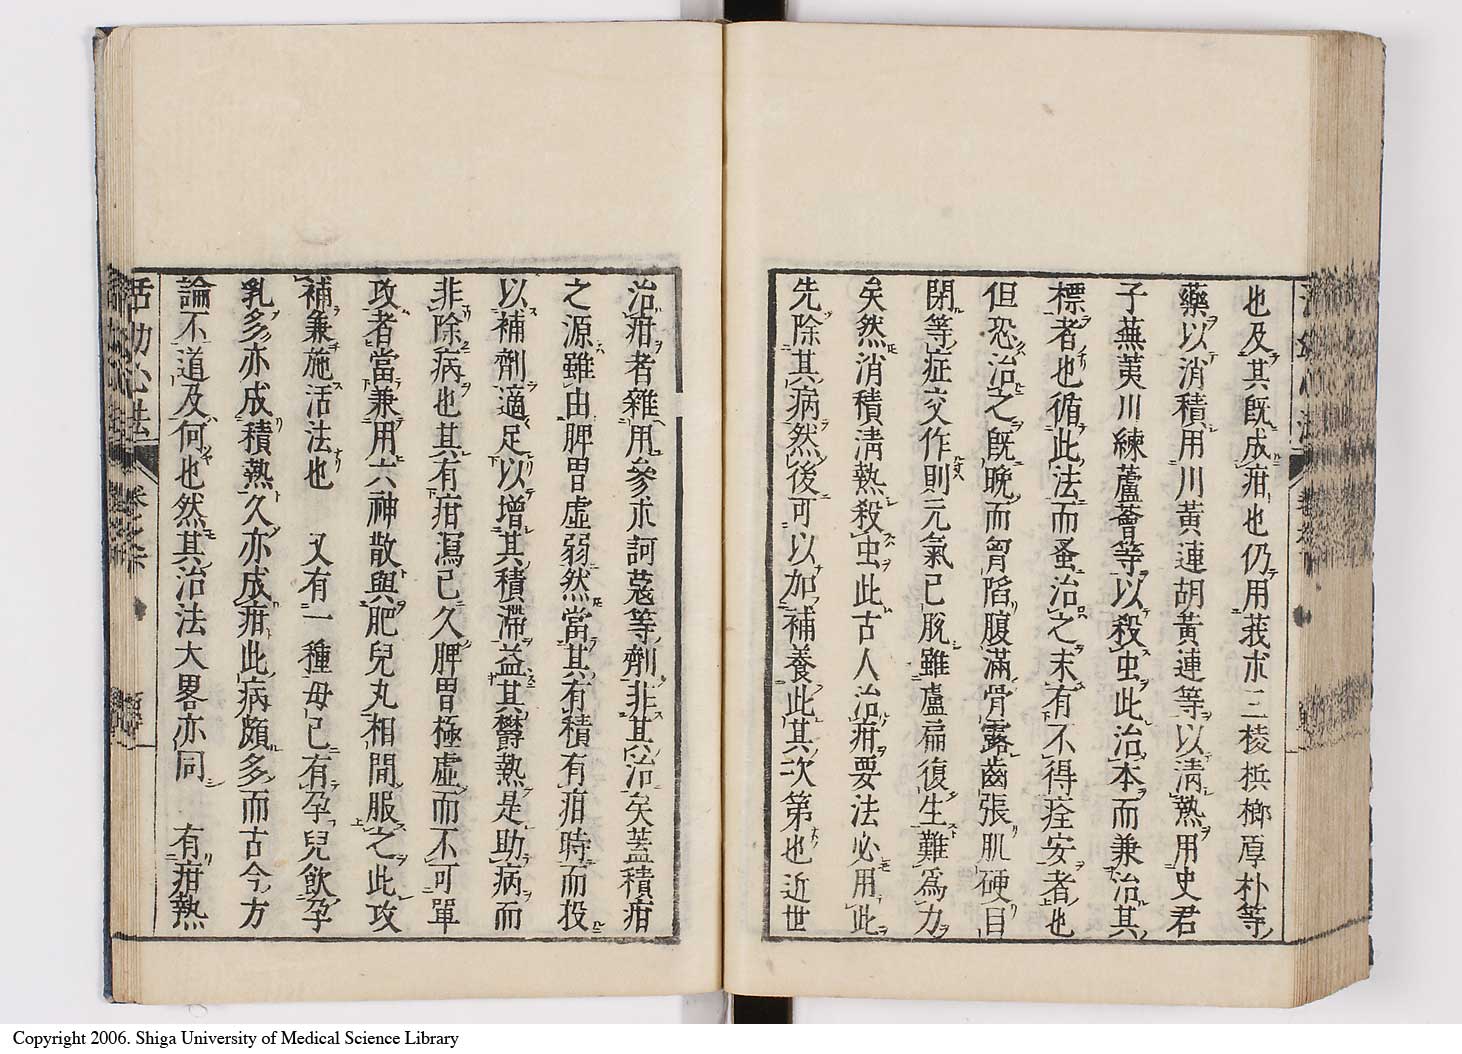 也及其既成疳也仍用莪朮三稜梹榔厚朴等
藥以消積用川黃連胡黃連等以淸熱用史君
子蕪荑川練蘆薈等以殺虫此治本而兼治其
標者也循此法而蚤治之末有不得痊安者也
但恐治之既晩而胷陷腹滿骨露齒張肌硬目
閉等症交作則元氣已脫雖盧扁復生難爲力
矣然消積淸熱殺虫此古人治疳要法必用此
先除其病然後可以加補養此其次第也近世
治疳者雜用參朮訶蔻等劑非其治矣蓋積疳
之源雖由脾胃虛弱然當其有積有疳時而投
以補劑適足以增其積滯益其欝熱是助病而
非除病也其有疳瀉已久脾胃極虛而不可單
攻者當兼用六神散與肥兒丸相間服之此攻
補兼施活法也 又有一種母已有孕兒飮孕
乳多亦成積熱久亦成疳此病頗多而古今方
論不道及何也然其治法大畧亦同 有疳熱
活幼心法 卷之六
Copyright 2006. Shiga University of Medical Science Library